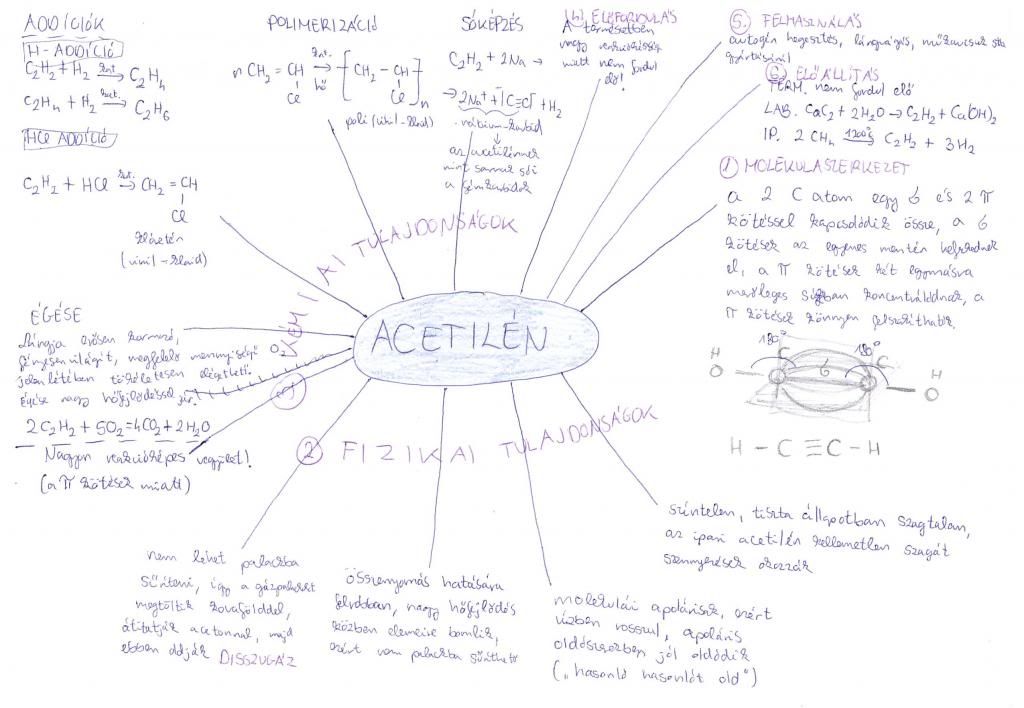 ADDÍCIÓK
H-ADDÍCIÓ
C₂H₂ + H₂ kat.→ C₂H₄
C₂H₄ + H₂ kat.→ C₂H₆
HCl ADDÍCIÓ
C₂H₂ + HCl kat.→ CH₂ = CH
Cl
klóretén
(vinil-klorid)
POLIMERIZÁCIÓ
n CH₂ = CH kat.→ hő [CH₂ - CH]n
Cl Cl
poli(vinil-klorid)
SÓKÉPZÉS
C₂H₂ + 2Na →
→ 2Na⁺ + [C≡C] + H₂
nátrium-karbid
↓
az acetilénnek
mint savnak sói
a fémkarbidok
4. ELŐFORDULÁS
A természetben
nagy reakciókészség
miatt nem fordul
elő!
5. FELHASZNÁLÁS
autogén hegesztés, lángvágás, műkaucsuk stb.
gyártásánál
6. ELŐÁLLÍTÁS
TERM. nem fordul elő
LAB. CaC₂ + 2H₂O → C₂H₂ + Ca(OH)₂
IP. 2 CH₄ 1200°C→ C₂H₂ + 3H₂
1 MOLEKULASZERKEZET
a 2 C atom egy σ és 2 π
kötéssel kapcsolódik össze, a σ
kötések az egyenes mentén helyezkednek
el, a π kötések két egymásra
merőleges síkban koncentrálódnak, a
π kötések könnyen felszakíthatók.
180° 180°
H C σ C H
H - C ≡ C - H
ACETILÉN
3 KÉMIAI TULAJDONSÁGOK
ÉGÉSE
Lángja erősen kormozó,
fényesen világít, megfelelő mennyiségű O₂
jelenlétében tökéletesen elégethető.
Égése nagy hőfejlődéssel jár.
2C₂H₂ + 5O₂ = 4CO₂ + 2H₂O
Nagyon reakcióképes vegyület!
(a π kötések miatt)
2 FIZIKAI TULAJDONSÁGOK
nem lehet palackba
sűríteni, így a gázpalackot
megtöltik kovafölddel,
átitatják acetonnal, majd
ebben oldják DISSZUGÁZ
összenyomás hatására
felrobban, nagy hőfejlődés
közben elemeire bomlik,
ezért nem palackba sűríthető
molekulái apolárisak, ezért
vízben rosszul, apoláris
oldószerekben jól oldódik
("hasonló hasonlót old")
színtelen, tiszta állapotban szagtalan,
az ipari acetilén kellemetlen szagát
szennyezések okozzák